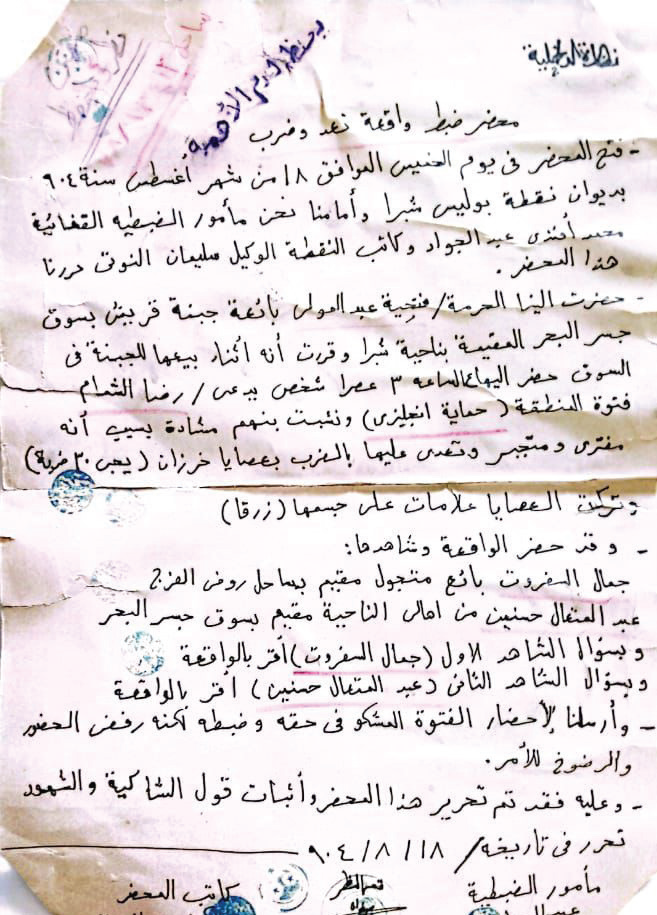 نظارة الداخلية
يحفظ لعدم الأهمية
محضر ضبط واقعة تعد وضرب
- فتح المحضر فى يوم الخميس الموافق ١٨ من شهر أغسطس سنة ٩٠٤
بديوان نقطة بوليس شبرا وأمامنا نحن مأمور الضبطيه القضائية
محمد أفندى عبد الجواد وكاتب النقطة الوكيل سليمان النوتى حررنا
هذا المحضر.
- حضرت الينا الحرمة / فتحية عبد المولى بائعة جبنة قريش بسوق
جسر البحر المقيمة بناحية شبرا وقررت أنه أثناء بيعها للجبنة فى
السوق حضر اليها الساعه ٣ عصرا شخص يدعى / رضا الشمام
فتوة المنطقة (حماية انجليزى) ونشبت بنهم مشادة بسبب أنه
مفترى ومتجبر وتعدى عليها بالضرب بعصايا خرزان (يجى ٣٠ ضربة)
وتركت العصايا علامات على جسمها (زرقا)
- وقد حضر الواقعة وشاهدها:
جمال السفروت بائع متجول مقيم بساحل روض الفرج
عبد المتعال حسنين من اهالى الناحية مقيم بسوق جسر البحر
وبسؤال الشاهد الاول (جمال السفروت) أقر بالواقعة
وبسؤال الشاهد الثانى (عبد المتعال حسنين) أقر بالواقعة
- وأرسلنا لإحضار الفتوة المشكو فى حقه وضبطه لكنه رفض الحضور
والرضوخ للأمر.
- وعليه فقد تم تحرير هذا المحضر وأثبات قول الشاكية والشهود
تحرر فى تاريخه / ١٨ / ٨ / ٩٠٤
مأمور الضبطية
تم النظر
كاتب المحضر